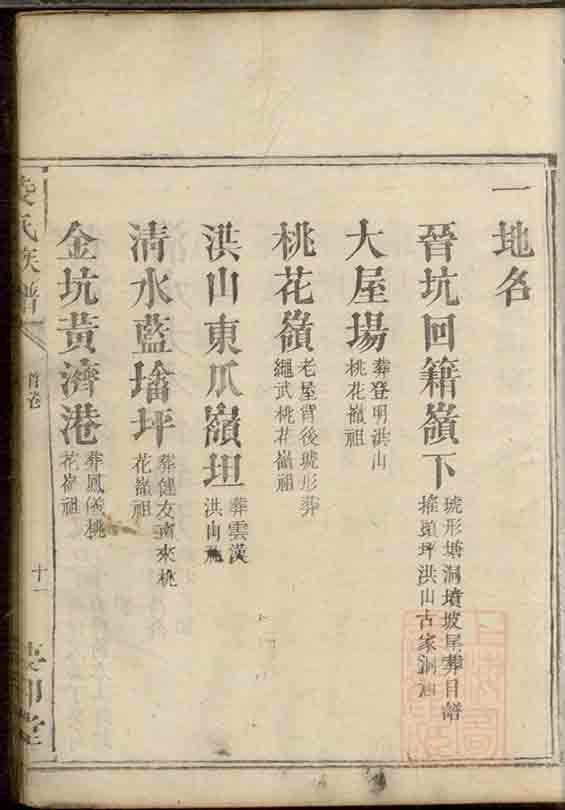 一地名
晉坑回籍嶺下
琥形塘洞墳坡尾葬目譜
搖頭坪洪山古家洞
大屋場
葬登明洪山
桃花嶺祖
桃花嶺
老屋背後琥形葬
繩武桃花嶺祖
洪山東爪嶺坦
葬雲漢
洪山
清水藍坪
葬健友南來桃
花嶺祖
金坑黃濟港
葬鳳儀桃
花嶺祖
氏族譜
首卷
十一
堂